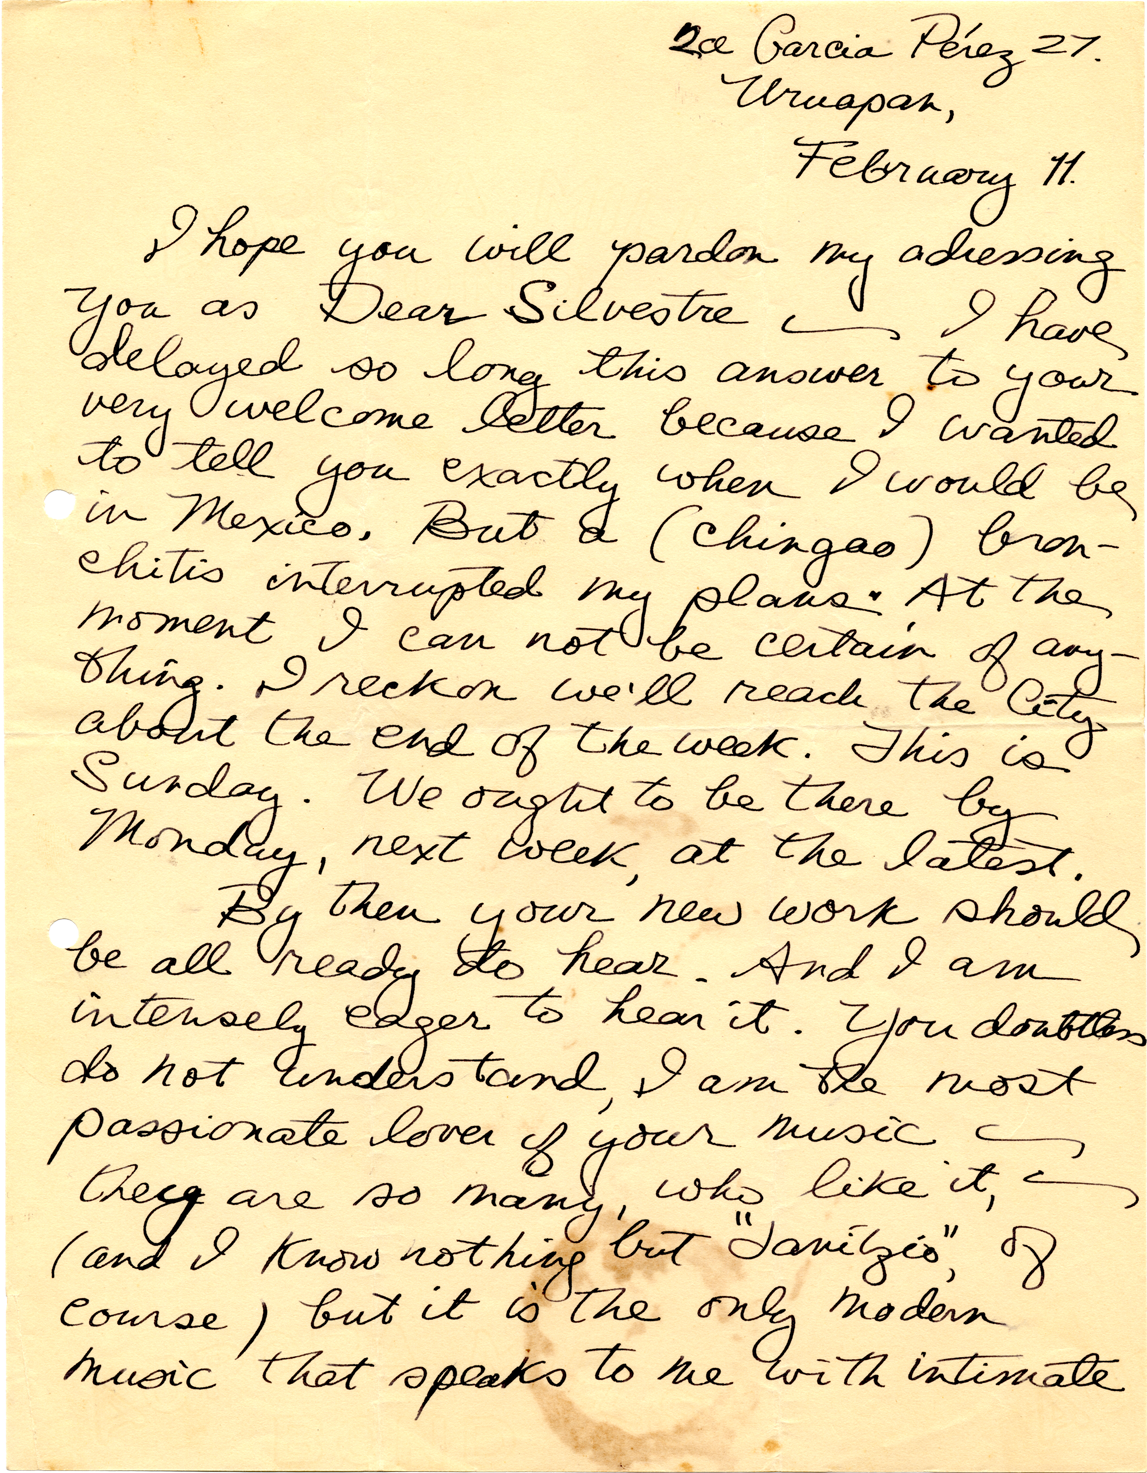 2a Garcia Pérez 27.
Uruapan,
February 11.
I hope you will pardon my adressing
you as Dear Silvestre — I have
delayed so long this answer to your
very welcome letter because I wanted
to tell you exactly when I would be
in Mexico. But a (chingao) bron-
chitis interrupted my plans. At the
moment I can not be certain of any-
thing. I reckon we'll reach the City
about the end of the week. This is
Sunday. We ought to be there by
Monday, next week, at the latest.
By then your new work should
be all ready to hear. And I am
intensely eager to hear it. You doubtless
do not understand, I am the most
passionate lover of your music —
they are so many, who like it, —
(and I know nothing but "Janitzio", of
course) but it is the only modern
music that speaks to me with intimate